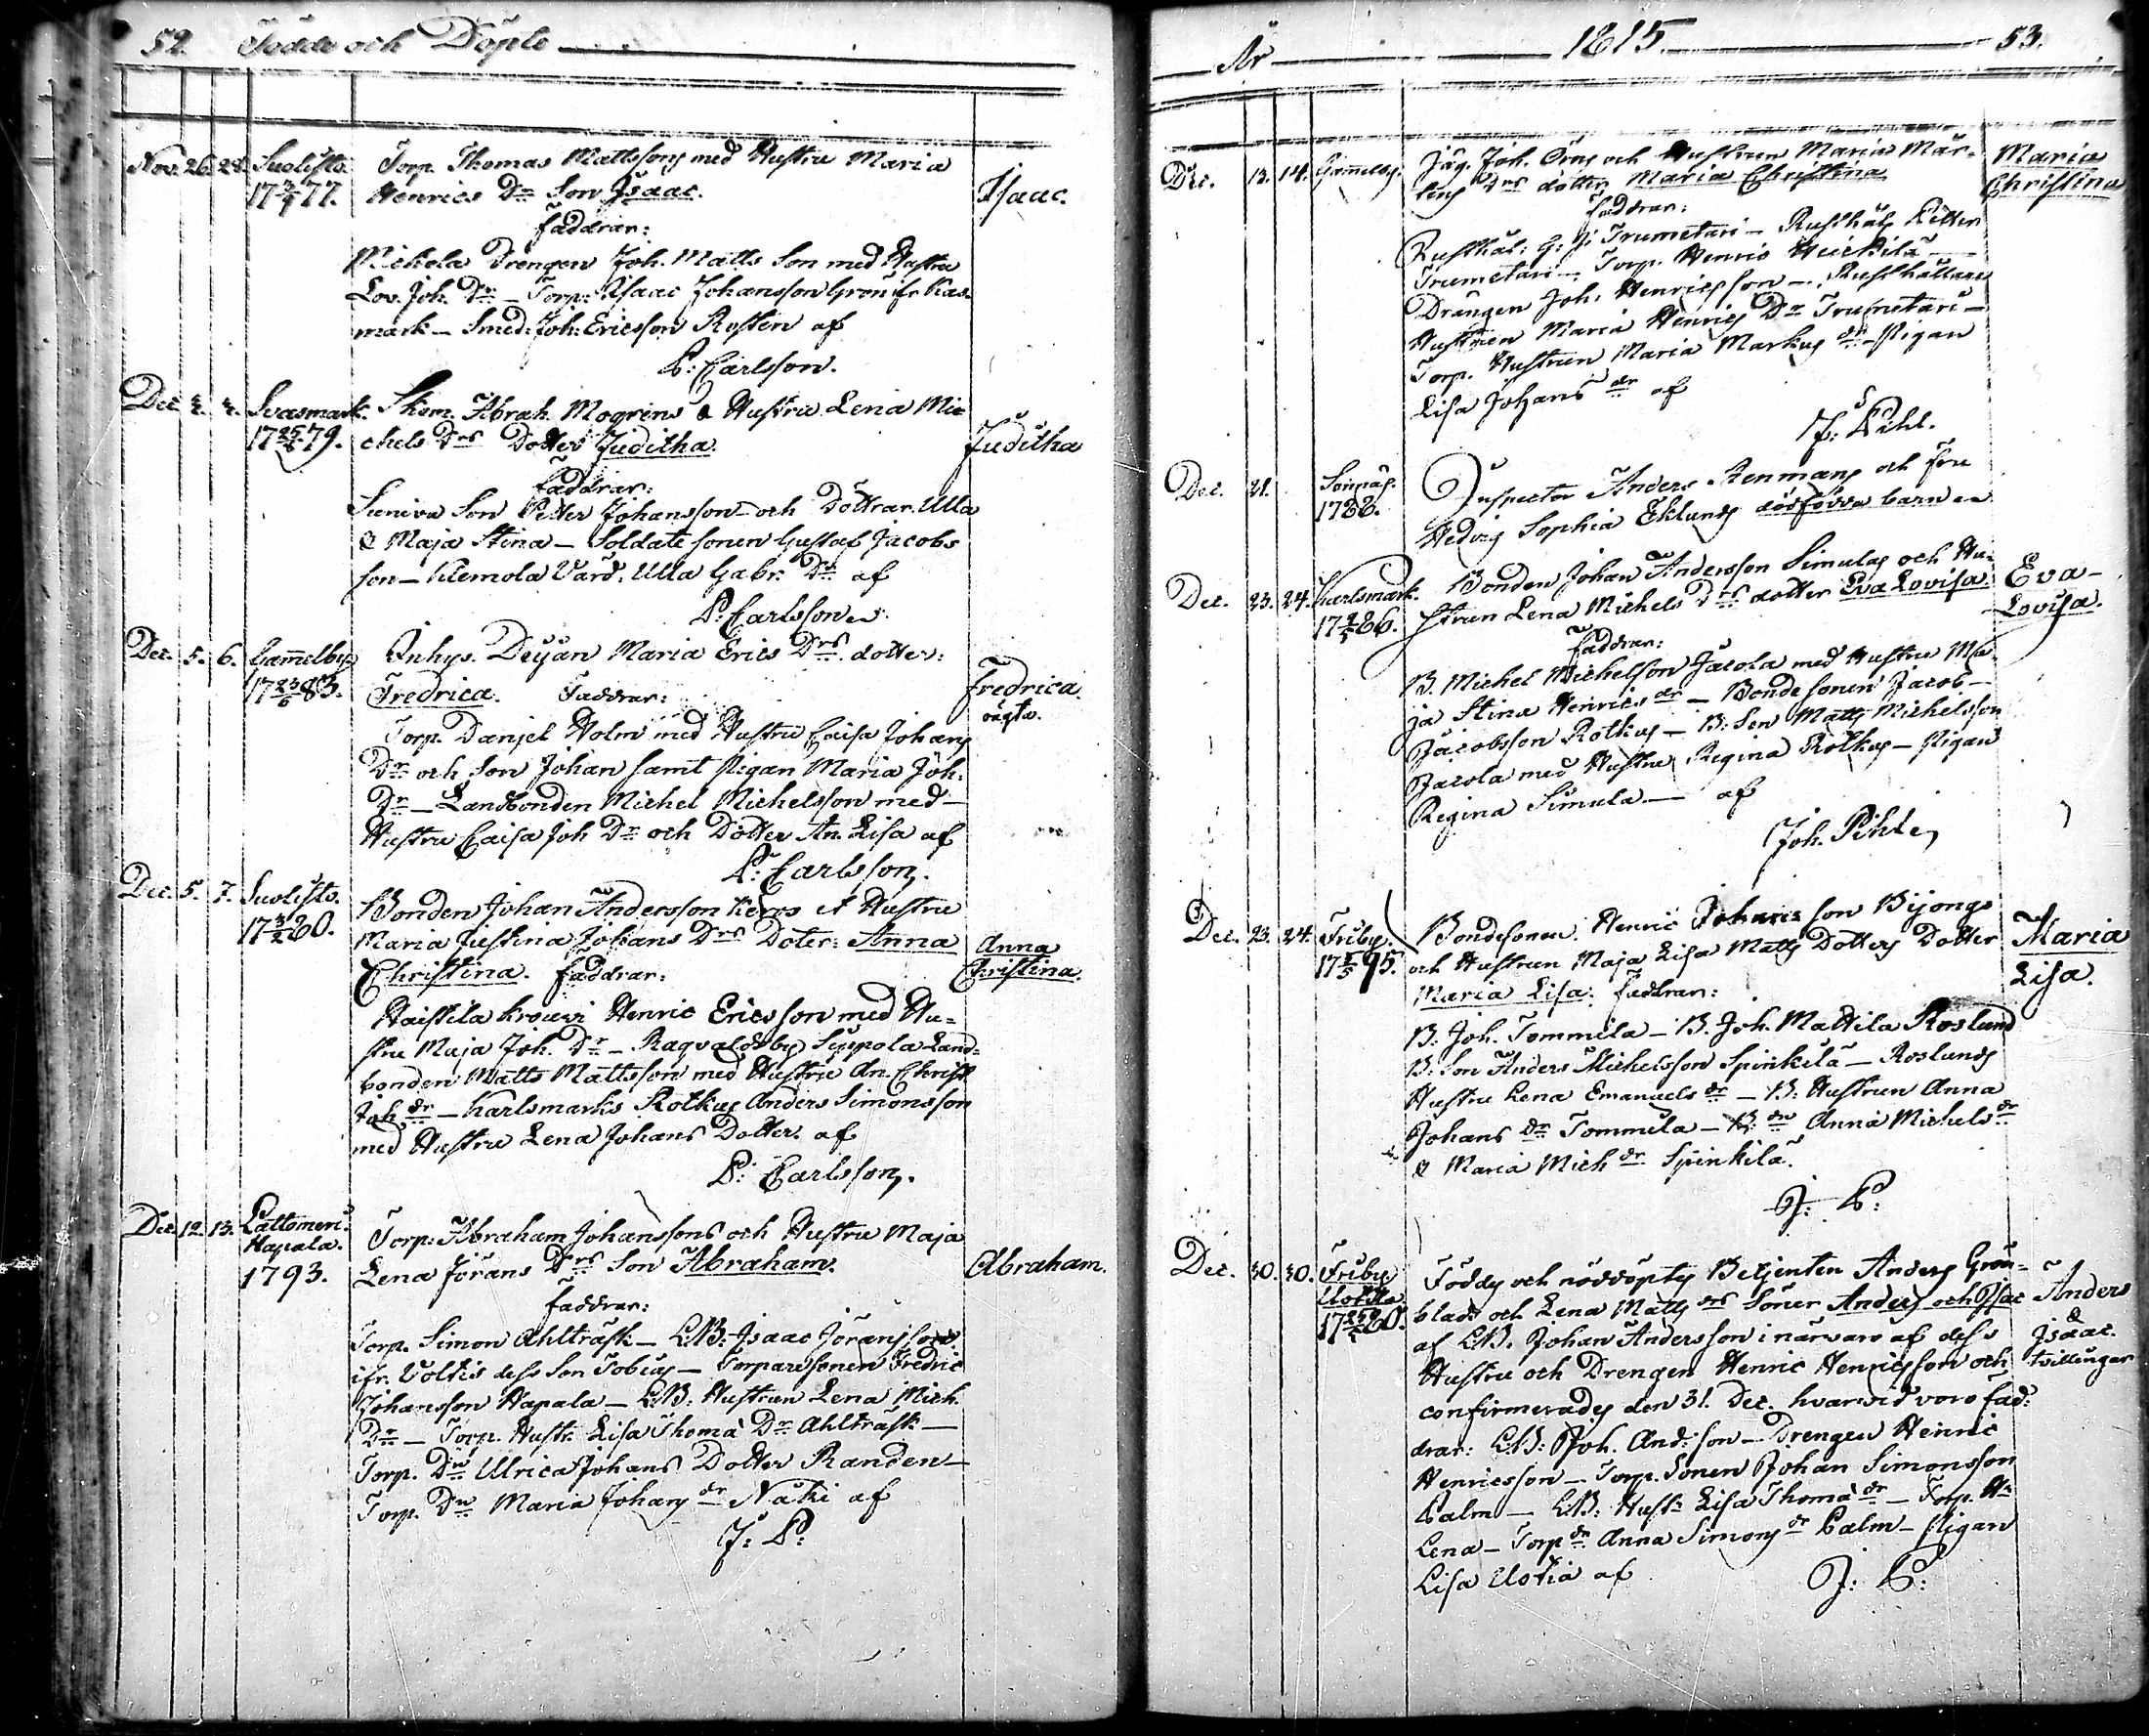 52. Födde och Döpte
Nov. 26. 28. Suolisto Torp. Thomas Mattssons med Hustru Maria
17 3/4 77. Henrics Drs Son Isaac. Isaac.
faddrar:
Mickola Drengen Joh. Matts Son med Hustru
Lov. Joh. Dr — Torp. Isaac Johansson Grön ifr. Kas-
mark — Smed. Joh. Ericsson Rosten af
P: Carlsson.
Dec. 2. 4. Svasmark. Skom. Abrah. Mogrens & Hustru Lena Mi-
17 25/8 79. chels Drs Dotter Juditha. Juditha
faddrar:
Suniva Son Petter Johansson och Döttrar. Ulla
& Maja Stina — Soldate sonen Gustaf Jacobs
son — Klemola Värd. Ulla Gabr. Dr af
P. Carlsson
Dec. 5. 6. Gammelby Inhys. Deijan Maria Erics Drs dotter:
17 23/5 83. Fredrica. Faddrar: Fredrica
oägta.
Torp. Daniel Holm med Hustru Caisa Johans
Dr och Son Johan samt Pigan Maria Joh.
Dr — Landbonden Michel Michelsson med
Hustru Caisa Joh Dr och Dotter An. Lisa af
P: Carlsson.
Dec. 5. 7. Suolisto. Bonden Johan Andersson Keros & Hustru
17 3/2 80. Maria Justina Johans Drs Doter: Anna Anna
Christina. faddrar: Christina.
Haistila Krouvi Henric Ericsson med Hu-
stru Maja Joh. Dr — Ragvaldsby Suppola Land-
bonden Matts Mattsson med Hustru An. Christ
Joh dr — Karlsmarks Rotkus Anders Simonsson
med Hustru Lena Johans Dotter af
P: Carlsson.
Dec. 12. 13. Lattomeri Torp: Abraham Johanssons och Hustru Maja
Hapala.
1793. Lena Jörans Drs Son Abraham. Abraham.
faddrar:
Torp. Simon Ahlträsk — LB. Isaac Jöransson
ifr. Voltis dess Son Tobias — Torparesonen Fredric
Johansson Hapala — LB: Hustrun Lena Mich.
Dr — Torp. Hustr. Lisa Thomæ Dr Ahlträsk —
Torp. Dn Ulrica Johans Dotter Randen —
Torp. Dn Maria Johans dr Näki af
J: P:
År 1815. 53.
Dec. 13. 14. Gammelby. Jäg. Joh. Örns och Hustrun Maria Mår- Maria
tens Drs dotter Maria Christina Christina
faddrar:
Rusthål: G: J: Trumetari — Rusthåls Petter
Trumetari — Torp. Henric Heickilä —
Drängen Joh. Henricsson — Rusthållare
Hustruen Maria Henrics Dr Trumetari —
Torp. Hustrun Maria Markus dr — Pigan
Lisa Johans dr af
J: Pihl.
Dec. 21. Sonnäs. Inspector Anders Renmans och Fru
1788. Hedvig Sophia Eklunds dödfödda barn
Dec. 23. 24. Karlsmark. Bonden Johan Andersson Simulas och Hu- Eva-
17 2/5 86. strun Lena Michels Drs dotter Eva Lovisa. Lovisa.
faddrar:
B. Michel Michelsson Jacola med Hustru Ma-
ja Stina Henrics dr — Bondesonen Jacob
Jacobsson Rotkus — B: Son Matts Michelsson
Jacola med Hustru Regina Rotkus — Pigan
Regina Simula — af
Joh. Pihl
Dec. 23. 24. Friby. Bondesonen Henric Johans son Bijongs Maria
17 95. och Hustrun Maja Lisa Matts Dotters Dotter Lisa.
Maria Lisa: faddrar:
B. Joh. Tommila — B. Joh. Mattila Roslund
B: Son Anders Michelsson Spinkilä — Roslunds
Hustru Lena Emanuels dr — B: Hustrun Anna
Johans dr Tommila — B: dr Anna Michels dr
& Maria Mich dr Spinkilä.
J: P:
Dec. 30. 30. Friby Föddes och nöddöptes Betjenten Anders Grön-
Uotila blads och Lena Matts drs Söner Anders och Isac Anders
17 80. af LB. Johan Andersson i närvaro af dess & Isaac.
Hustru och Drengen Henric Henricsson och tvillingar
confirmerades den 31. Dec. hvarvid voro fad-
drar: LB: Joh. And: son — Drengen Henric
Henricsson — Torp. Sonen Johan Simonsson
Palm — LB: Hustr. Lisa Thomæ dr — Torp. Hu
Lena — Torp dr Anna Simons dr Palm — Pigan
Lisa Uotia af J: P: